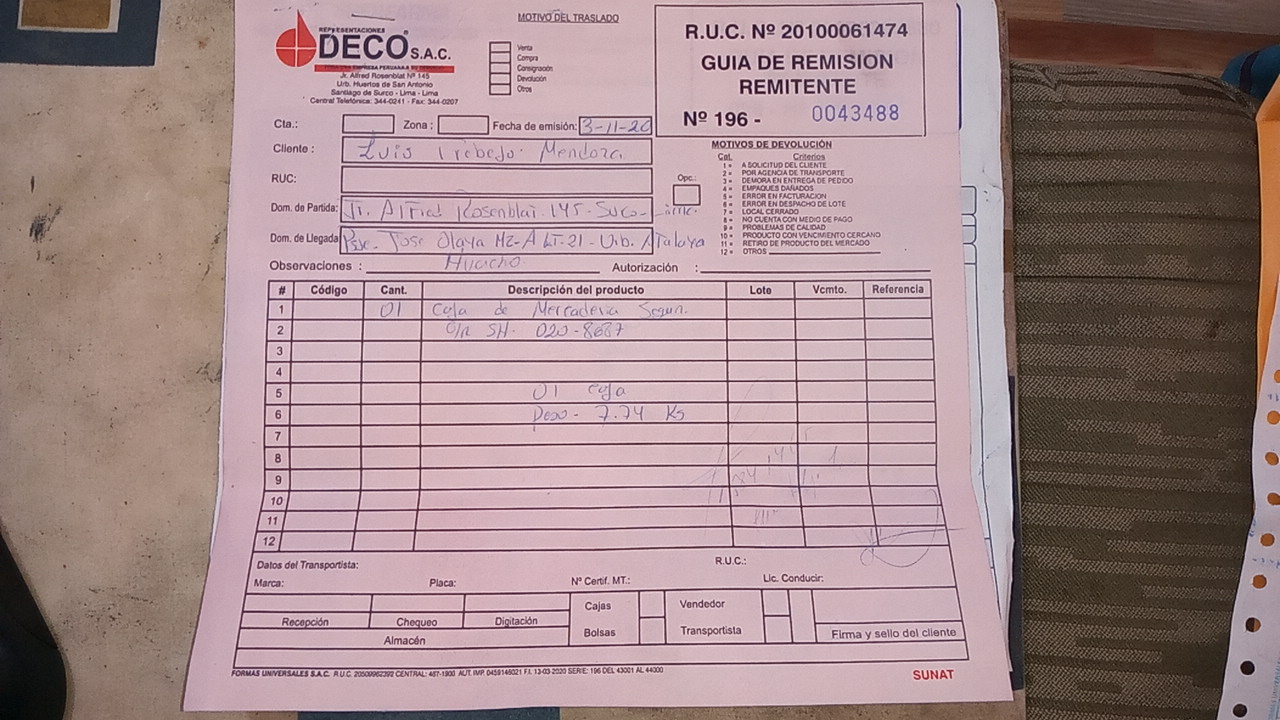 REPRESENTACIONES
DECO S.A.C.
Jr. Alfred Rosenblat Nº 145
Urb. Huertos de San Antonio
Santiago de Surco - Lima - Lima
Central Telefónica: 344-0241 - Fax: 344-0207
MOTIVO DEL TRASLADO
Venta
Compra
Consignación
Devolución
Otros
R.U.C. Nº 20100061474
GUIA DE REMISION
REMITENTE
Nº 196 - 0043488
Cta.: Zona : Fecha de emisión: 3-11-20
Cliente : Luis Trebejo Mendoza
RUC:
Dom. de Partida: Jr. Alfred Rosenblat 145 - Surco - Lima
Dom. de Llegada: Psje. Jose Olaya MZ-A LT-21 - Urb. Atalaya
Huacho
Observaciones : Autorización :
MOTIVOS DE DEVOLUCIÓN
Cat. Criterios
1 = A SOLICITUD DEL CLIENTE
2 = POR AGENCIA DE TRANSPORTE
3 = DEMORA EN ENTREGA DE PEDIDO
4 = EMPAQUES DAÑADOS
5 = ERROR EN FACTURACION
6 = ERROR EN DESPACHO DE LOTE
7 = LOCAL CERRADO
8 = NO CUENTA CON MEDIO DE PAGO
9 = PROBLEMAS DE CALIDAD
10 = PRODUCTO CON VENCIMIENTO CERCANO
11 = RETIRO DE PRODUCTO DEL MERCADO
12 = OTROS
Opc.:
# Código Cant. Descripción del producto Lote Vcmto. Referencia
1 01 Caja de Mercaderia Segun.
2 G/R SH. 020-8687
3
4
5 01 Caja
6 Peso - 7.74 Ks
7
8
9
10
11
12
Datos del Transportista: R.U.C.:
Marca: Placa: Nº Certif. MT.: Lic. Conducir:
Recepción Chequeo Digitación
Almacén
Cajas Vendedor
Bolsas Transportista
Firma y sello del cliente
FORMAS UNIVERSALES S.A.C. R.U.C. 20509962392 CENTRAL: 467-1900 AUT. IMP. 0459148021 F.I. 13-03-2020 SERIE: 196 DEL 43001 AL 44000
SUNAT